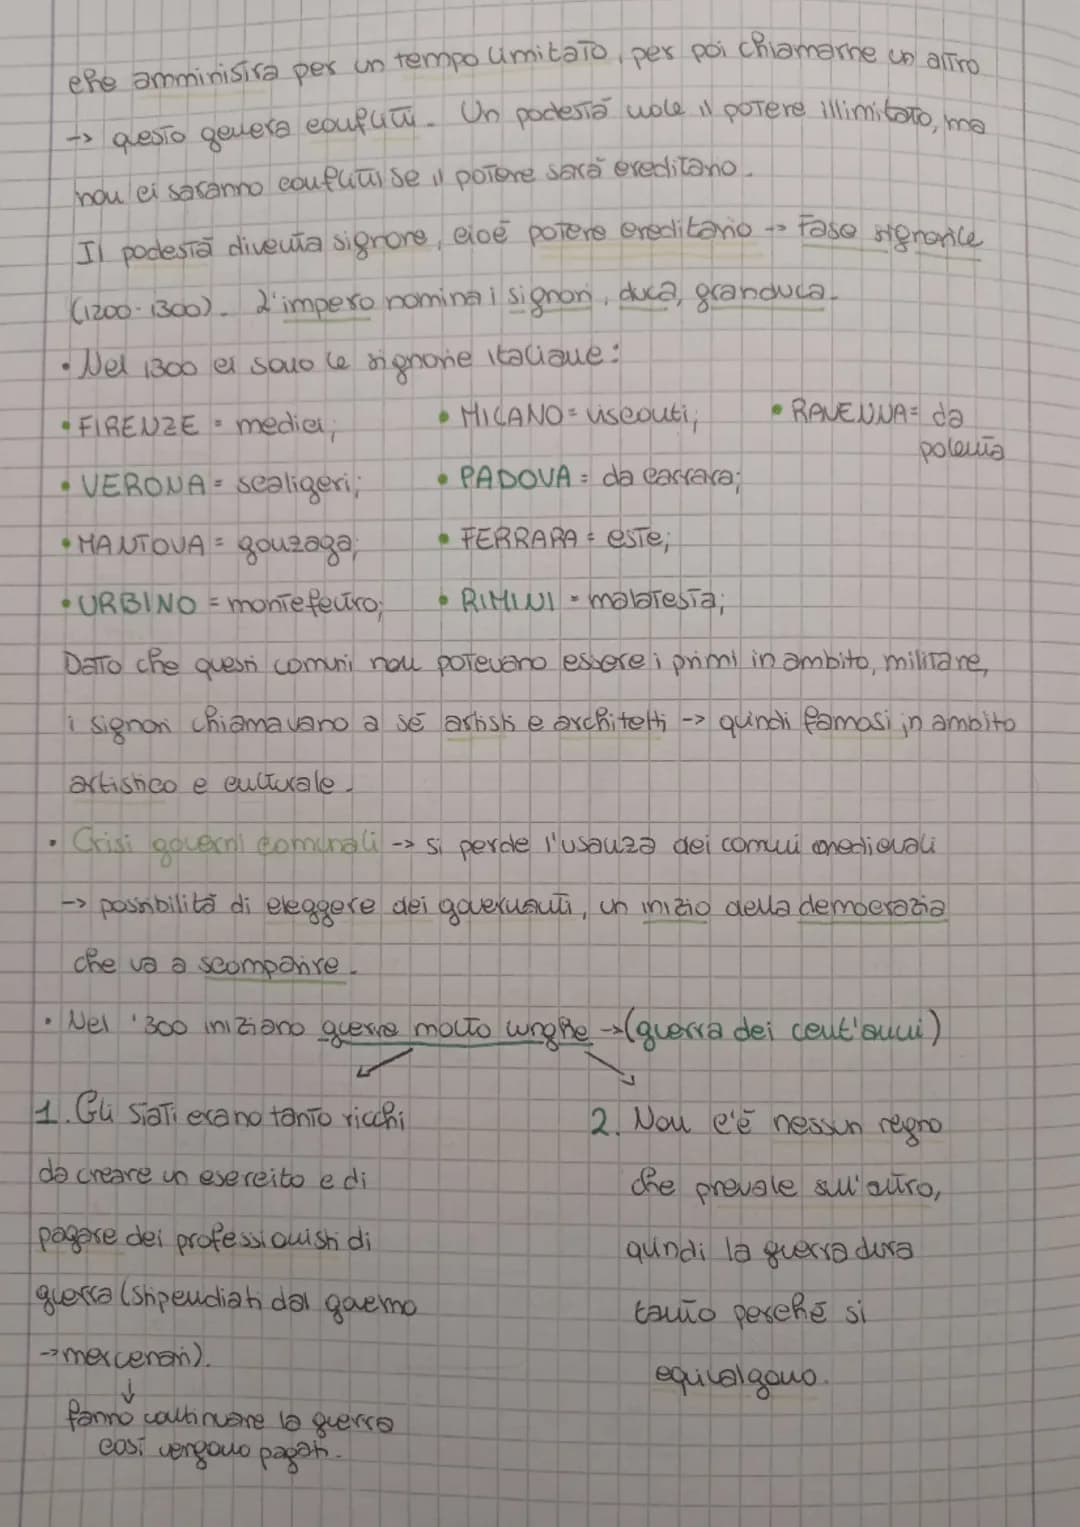 che amministra per un tempo limitato, per poi chiamarne un altro
-> questo genera conflitti. Un podestà vuole il potere illimitato, ma
non ci saranno conflitti se il potere sarà ereditario.
Il podestà diventa signore, cioè potere ereditario -> Fase signorile
(1200-1300). L'impero nomina i signori, duca, granduca.
• Nel 1300 ci sono le signorie italiane:
• FIRENZE = medici; • MILANO = visconti; • RAVENNA = da polenta
• VERONA = scaligeri; • PADOVA = da carrara;
• MANTOVA = gonzaga; • FERRARA = este;
• URBINO = montefeltro; • RIMINI = malatesta;
Datto che questi comuni non potevano essere i primi in ambito, militare,
i signori chiamavano a sé artisti e architetti -> quindi famosi in ambito
artistico e culturale.
• Crisi governi comunali -> si perde l'usanza dei comuni medievali
-> possibilità di eleggere dei governanti, un inizio della democrazia
che va a scomparire.
• Nel '300 iniziano guerre molto lunghe -> (guerra dei cent'anni)
1. Gli stati erano tanto ricchi
da creare un esercito e di
pagare dei professionisti di
guerra (stipendiati dal governo
-> mercenari).
↓
fanno continuare la guerra
così vengono pagati.
2. Non c'è nessun regno
che prevale sull'altro,
quindi la guerra dura
tanto perché si
equivalgono.